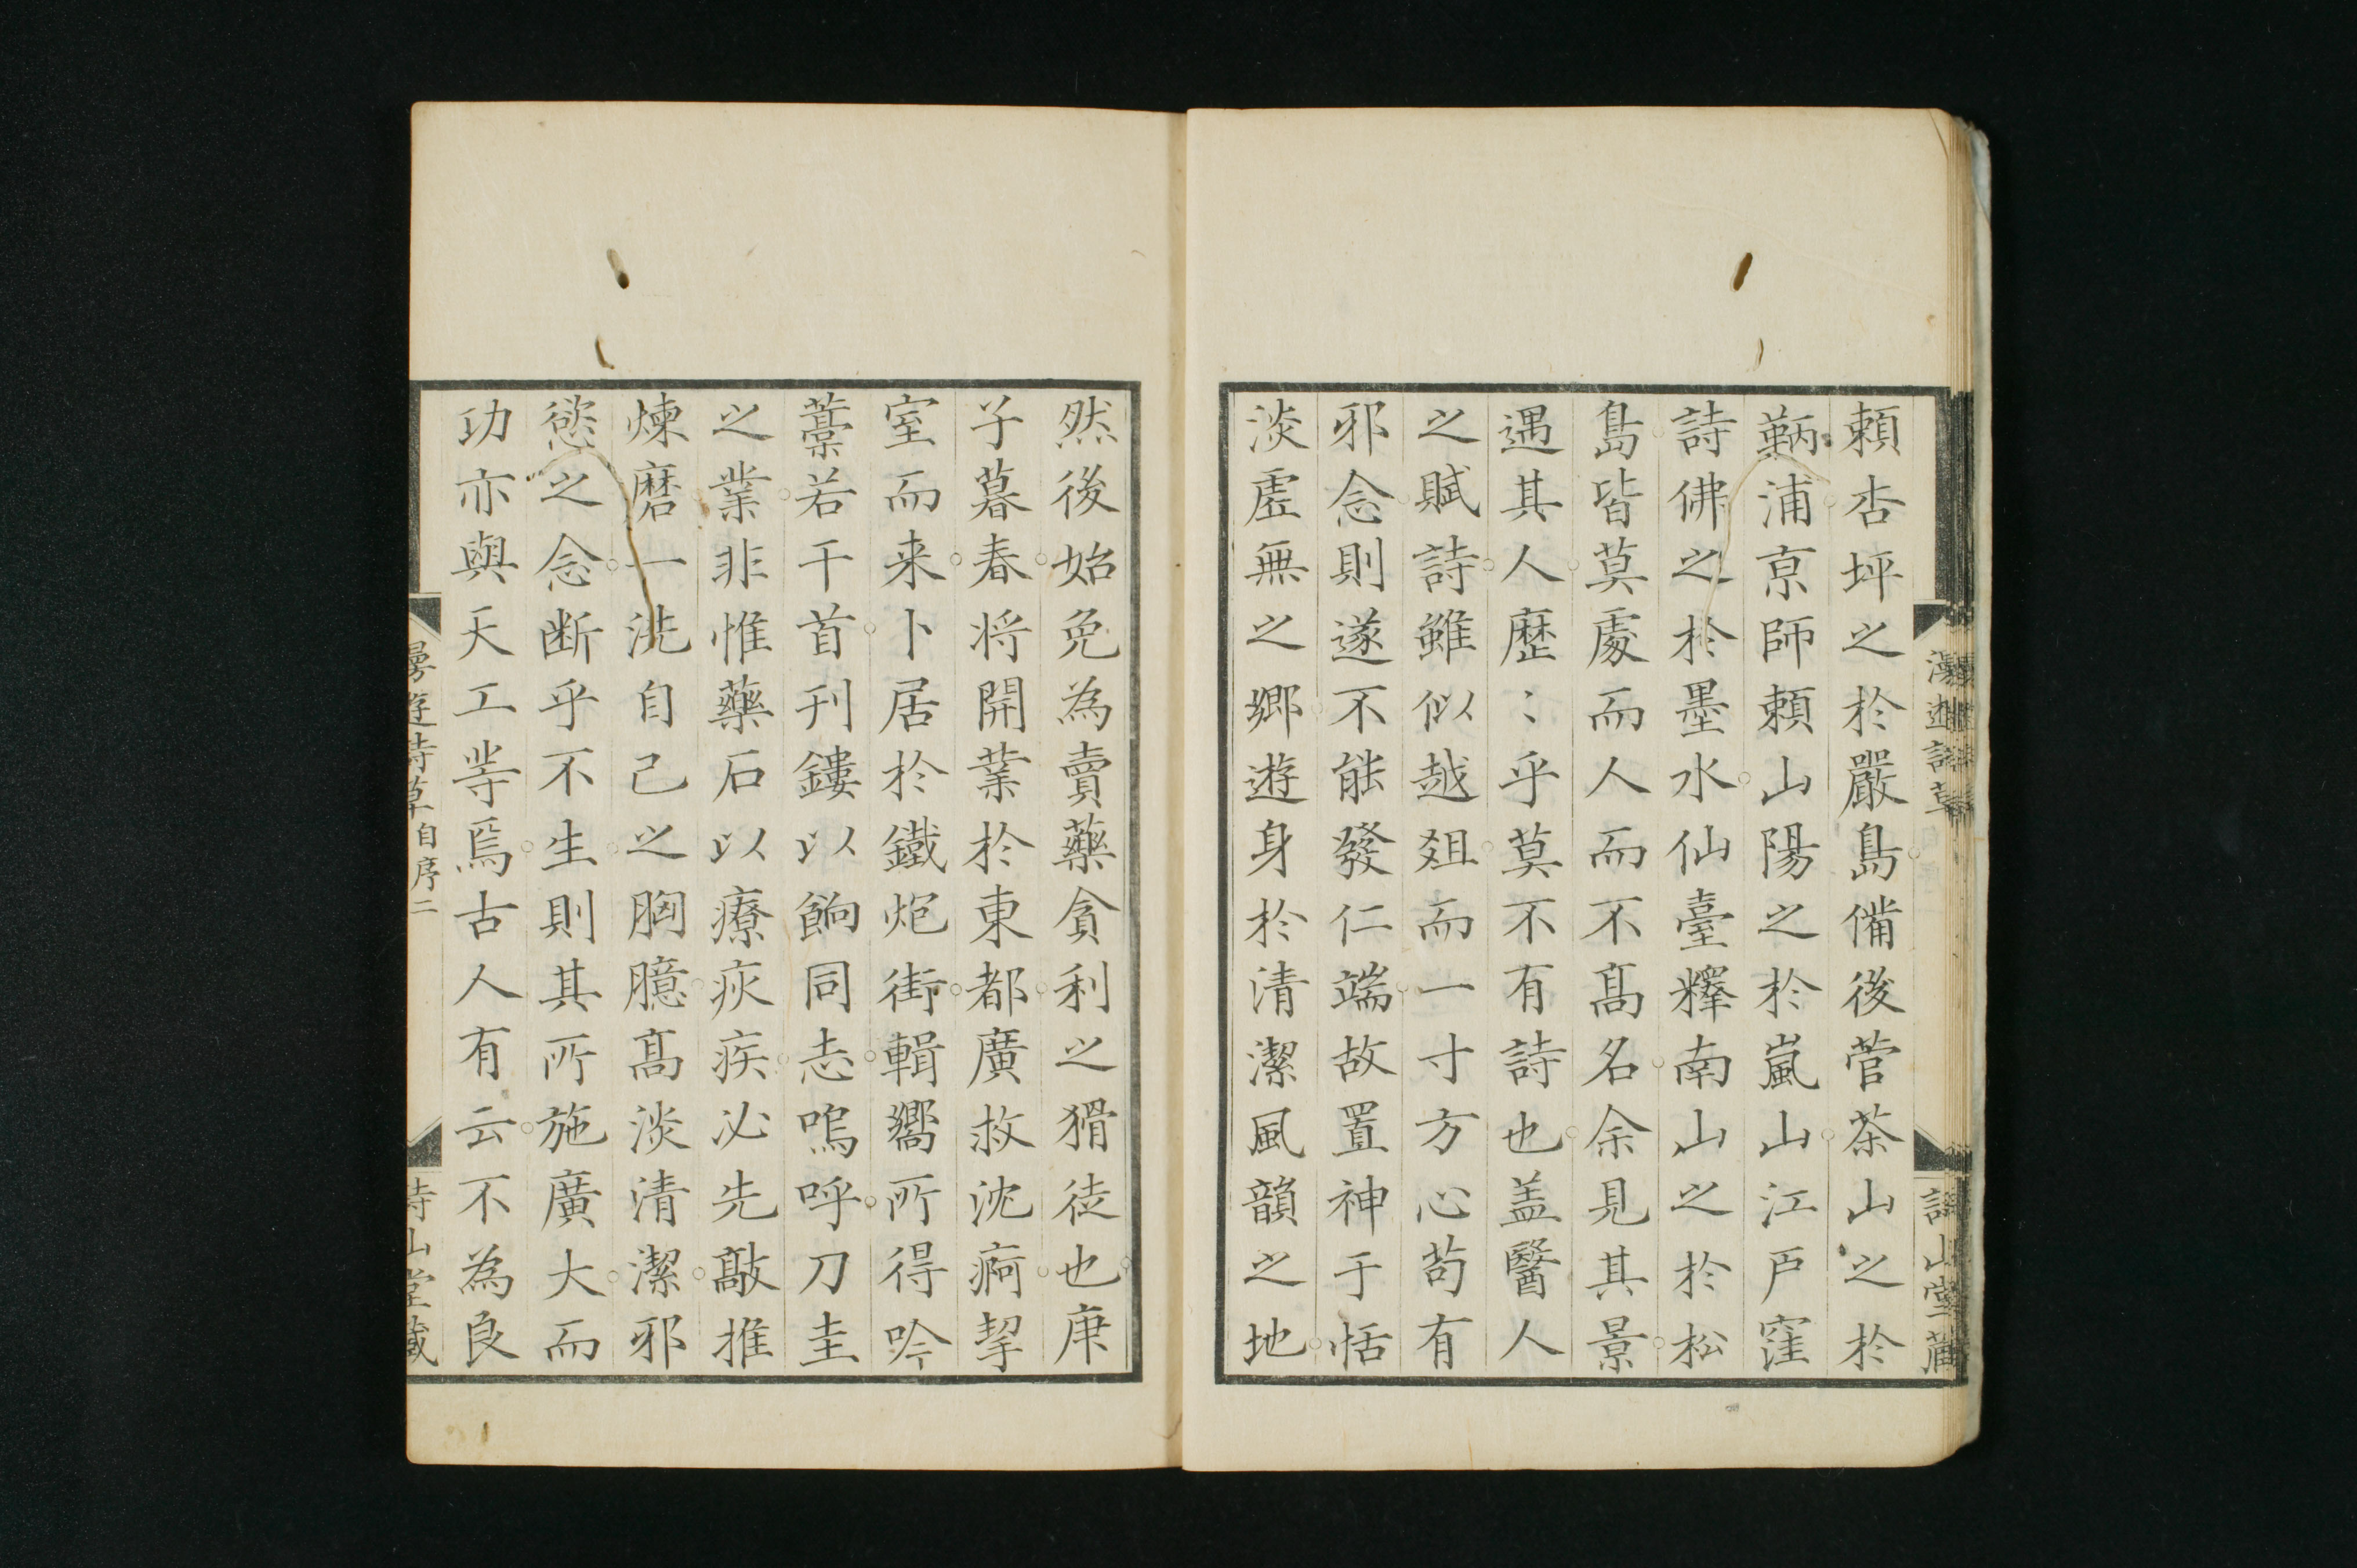 頼杏坪之於嚴島備後菅茶山之於
鞆浦京師頼山陽之於嵐山江戸窪
詩佛之於墨水仙臺釋南山之於松
島皆莫處而人而不髙名余見其景
遇其人歴〻乎莫不有詩也盖醫人
之賦詩雖似越爼而一寸方心苟有
邪念則遂不能發仁端故置神于恬
淡虛無之郷遊身於清潔風韻之地
然後始免為賣藥貪利之猾徒也庚
子暮春将開業於東都廣救沈痾挈
室而来卜居於鐵炮街輯嚮所得吟
藁若干首刊鏤以餉同志嗚呼刀圭
之業非惟藥石以療疢疾必先敲推
煉磨一洗自己之胸臆髙淡清潔邪
慾之念断乎不生則其所施廣大而
功亦與天工等焉古人有云不為良
漫遊詩草 自序二
詩山堂藏